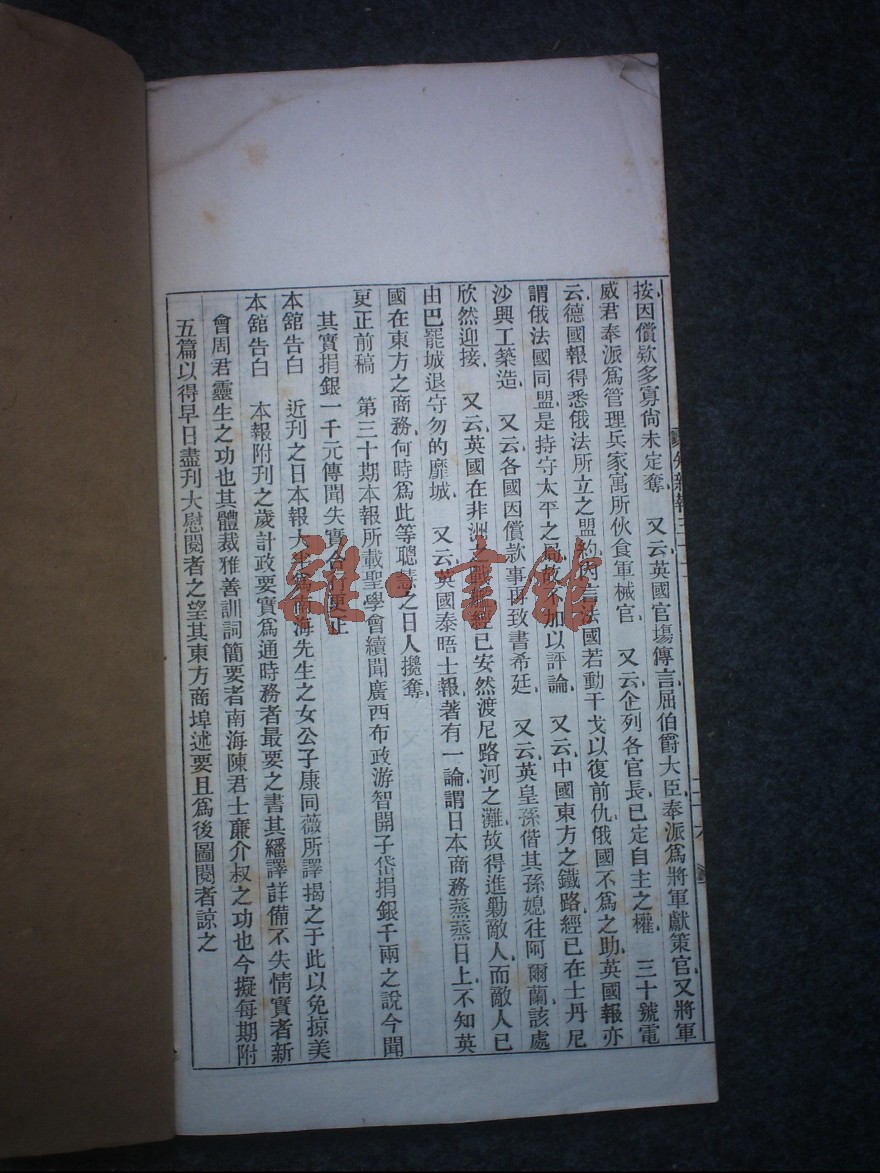 按因償欵多寡尙未定奪 又云英國官塲傳言屈伯爵大臣奉派爲將軍獻策官又將軍
威君奉派爲管理兵家寓所伙食軍械官 又云企列各官長已定自主之權 三十號電
云德國報得悉俄法所立之盟約內言法國若動干戈以復前仇俄國不爲之助英國報亦
謂俄法國同盟是持守太平之局故不加以評論 又云中國東方之鐵路經已在士丹尼
沙興工築造 又云各國因償款事再致書希廷 又云英皇孫偕其孫媳往阿爾蘭該處
欣然迎接 又云英國在非洲之戰艦經已安然渡尼路河之灘故得進勦敵人而敵人已
由巴罷城退守勿的靡城 又云英國泰晤士報著有一論謂日本商務蒸蒸日上不知英
國在東方之商務何時爲此等聰慧之日人攙奪
更正前稿 第三十期本報所載聖學會續聞廣西布政游智開子岱捐銀千兩之說今聞
其實捐銀一千元傳聞失實合行更正
本舘告白 近刊之日本報大半爲南海先生之女公子康同薇所譯揭之于此以免掠美
本舘告白 本報附刊之歲計政要實爲通時務者最要之書其繙譯詳備不失情實者新
會周君靈生之功也其體裁雅善訓詞簡要者南海陳君士廉介叔之功也今擬每期附
五篇以得早日盡刊大慰閱者之望其東方商埠述要且爲後圖閱者諒之
雜·書館